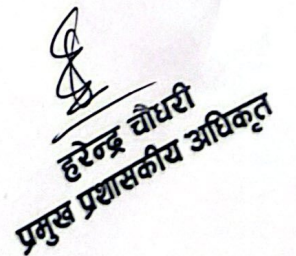 हरेन्द्र चौधरी
प्रमुख प्रशासकीय अधिकृत